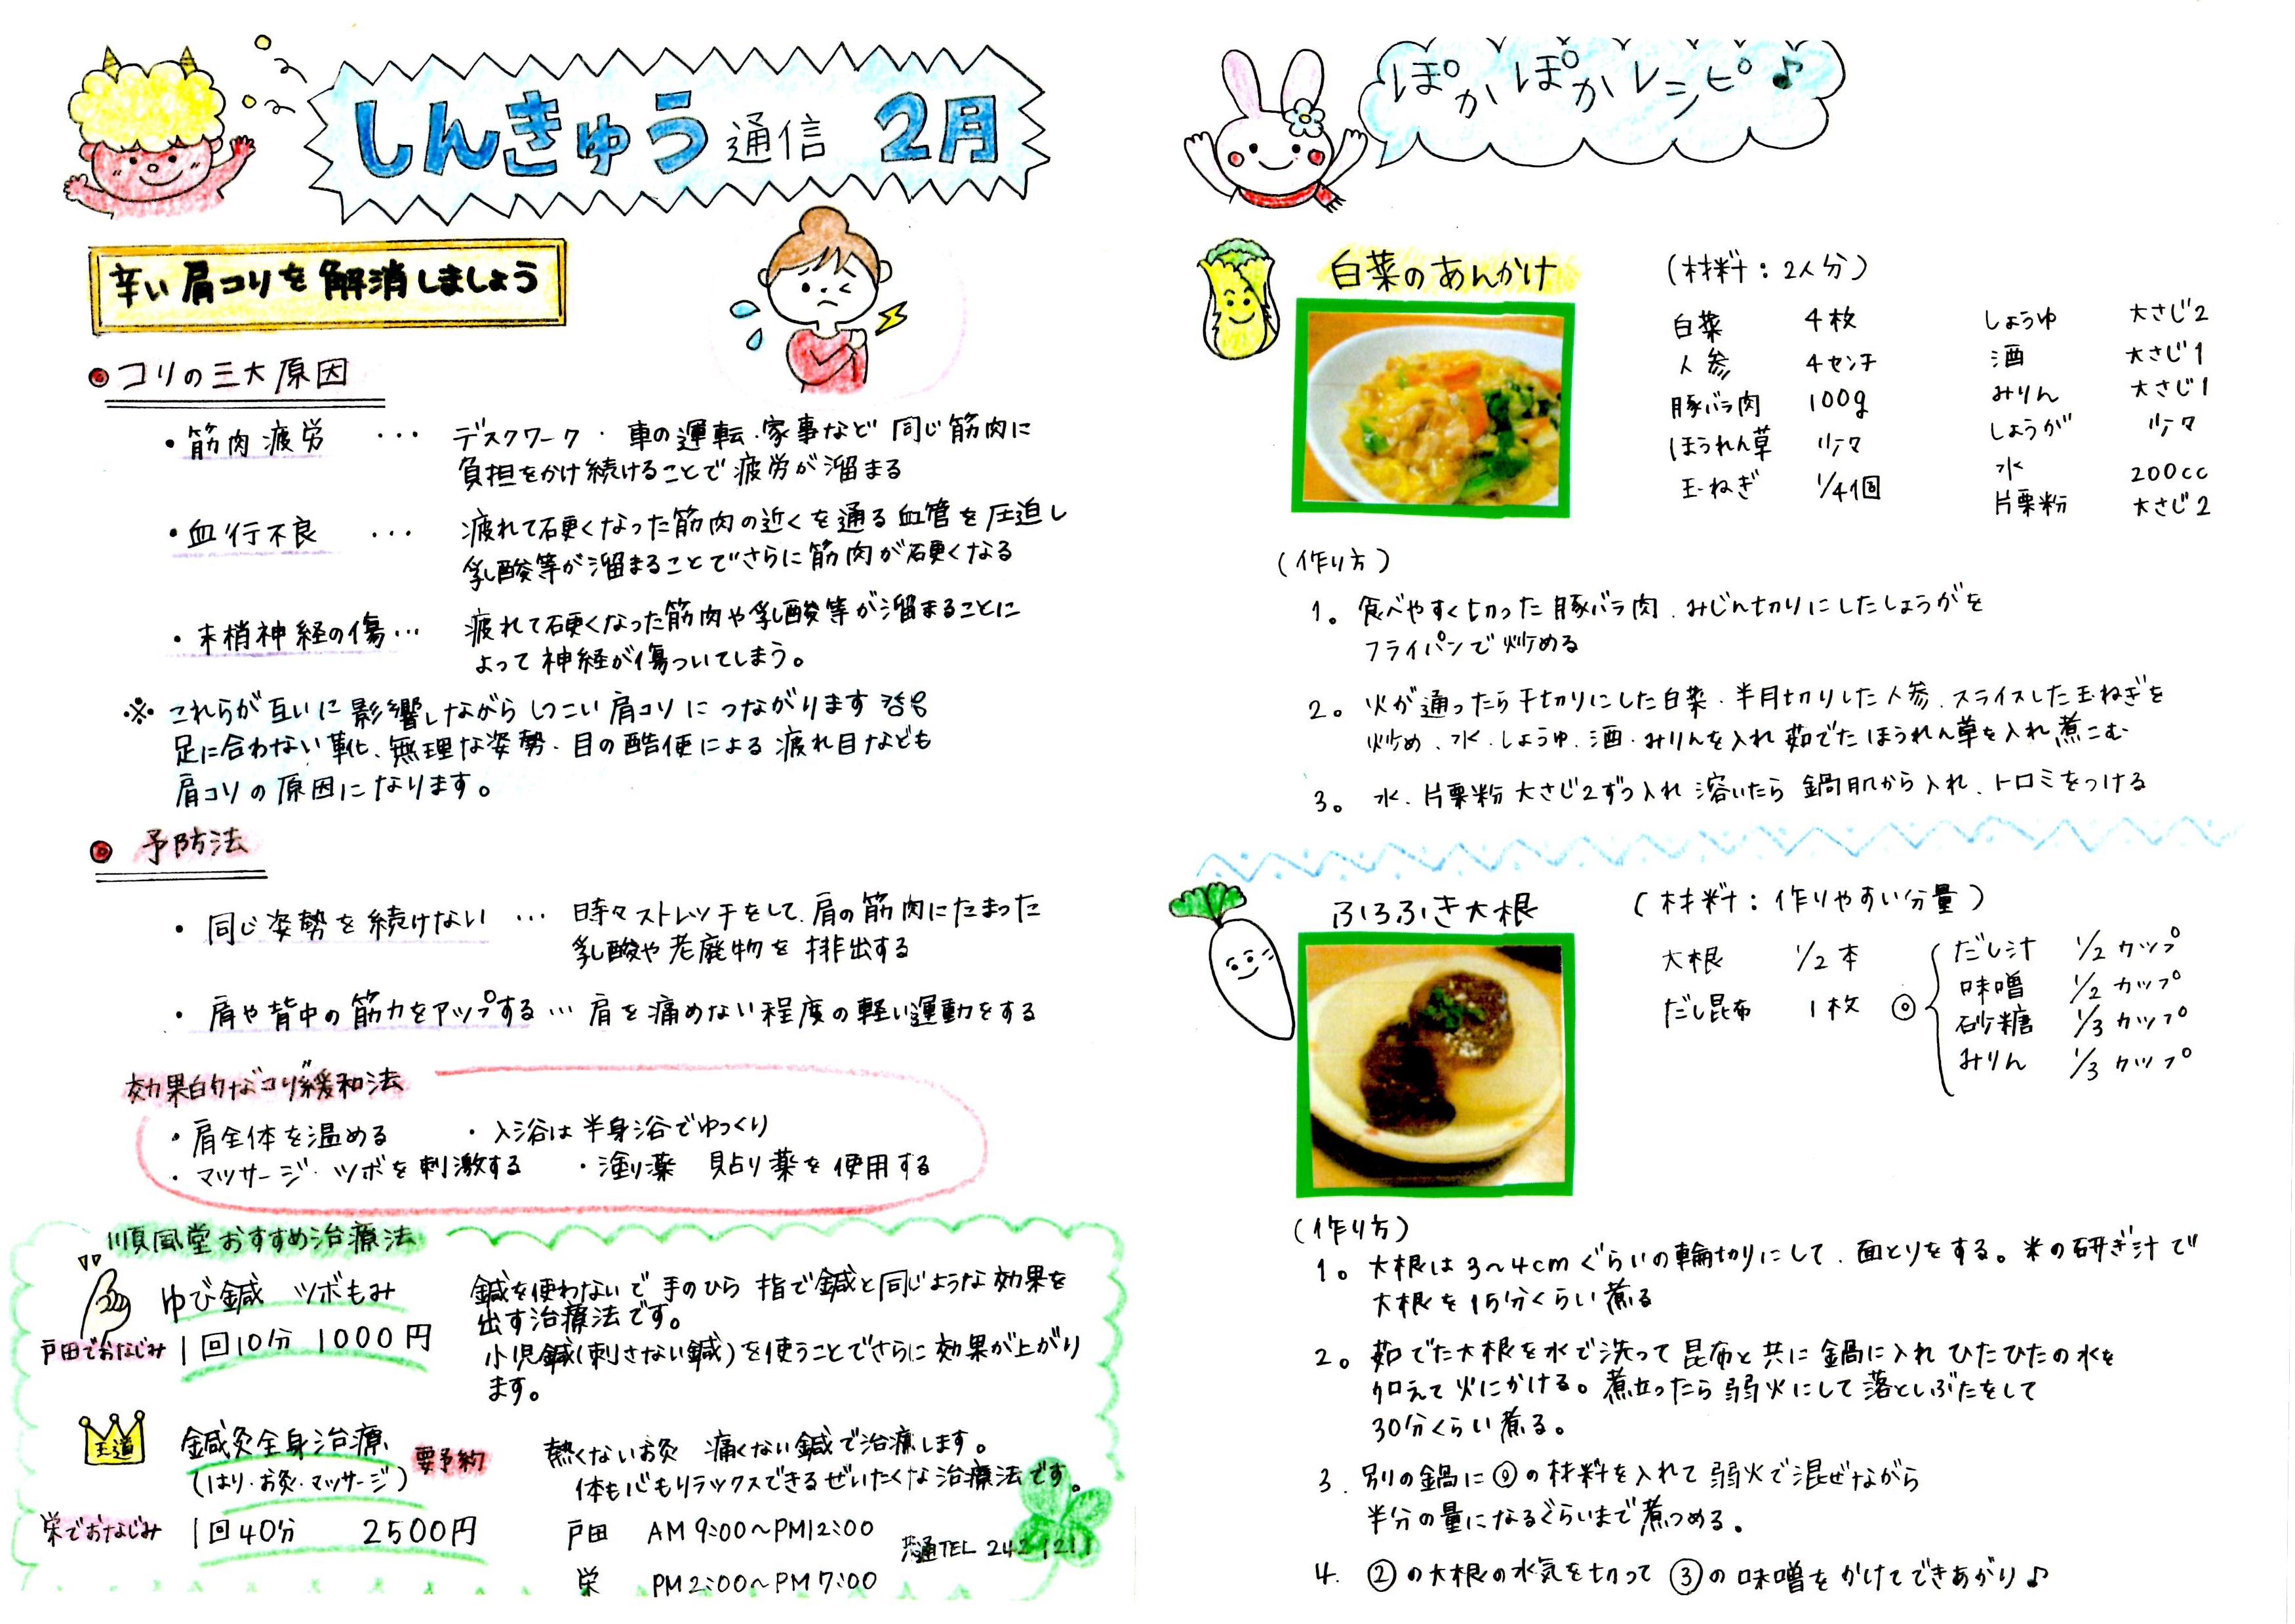 しんきゅう通信 2月
辛い肩コリを解消しましょう
コリの三大原因
・筋肉疲労 ・・・ デスクワーク・車の運転・家事など同じ筋肉に
負担をかけ続けることで疲労が溜まる
・血行不良 ・・・ 疲れて硬くなった筋肉の近くを通る血管を圧迫し
乳酸等が溜まることでさらに筋肉が硬くなる
・末梢神経の傷・・・ 疲れて硬くなった筋肉や乳酸等が溜まることに
よって神経が傷ついてしまう。
※これらが互いに影響しながらしつこい肩コリにつながります
足に合わない靴、無理な姿勢・目の酷使による疲れ目なども
肩コリの原因になります。
予防法
・同じ姿勢を続けない ・・・ 時々ストレッチをして、肩の筋肉にたまった
乳酸や老廃物を排出する
・肩や背中の筋力をアップする・・・肩を痛めない程度の軽い運動をする
効果的なコリ緩和法
・肩全体を温める ・入浴は半身浴でゆっくり
・マッサージ・ツボを刺激する ・塗り薬 貼り薬を使用する
順風堂おすすめ治療法
ゆび鍼 ツボもみ
戸田でおなじみ 1回10分 1000円
鍼を使わないで手のひら 指で鍼と同じような効果を
出す治療法です。
小児鍼(刺さない鍼)を使うことでさらに効果が上がり
ます。
王道 鍼灸全身治療 要予約
(はり・お灸・マッサージ)
栄でおなじみ 1回40分 2500円
熱くないお灸 痛くない鍼で治療します。
体も心もリラックスできるぜいたくな治療法です。
戸田 AM9:00〜PM12:00
栄 PM2:00〜PM7:00
共通TEL 242 1211
ぽかぽかレシピ♪
白菜のあんかけ (材料:2人分)
白菜 4枚 しょうゆ 大さじ2
人参 4センチ 酒 大さじ1
豚バラ肉 100g みりん 大さじ1
ほうれん草 少々 しょうが 少々
玉ねぎ 1/4個 水 200cc
片栗粉 大さじ2
(作り方)
1。食べやすく切った豚バラ肉、みじん切りにしたしょうがを
フライパンで炒める
2。火が通ったら千切りにした白菜・半月切りした人参、スライスした玉ねぎを
炒め、水・しょうゆ、酒・みりんを入れ茹でたほうれん草を入れ煮こむ
3。水、片栗粉大さじ2ずつ入れ溶いたら鍋肌から入れ、トロミをつける
ふろふき大根 (材料:作りやすい分量)
大根 1/2本 だし汁 1/2カップ
だし昆布 1枚 ◎ 味噌 1/2カップ
砂糖 1/3カップ
みりん 1/3カップ
(作り方)
1。大根は3〜4cmぐらいの輪切りにして、面とりをする。米の研ぎ汁で
大根を15分くらい煮る
2。茹でた大根を水で洗って昆布と共に鍋に入れひたひたの水を
加えて火にかける。煮立ったら弱火にして落としぶたをして
30分くらい煮る。
3. 別の鍋に◎の材料を入れて弱火で混ぜながら
半分の量になるぐらいまで煮つめる。
4. ②の大根の水気を切って③の味噌をかけてできあがり♪